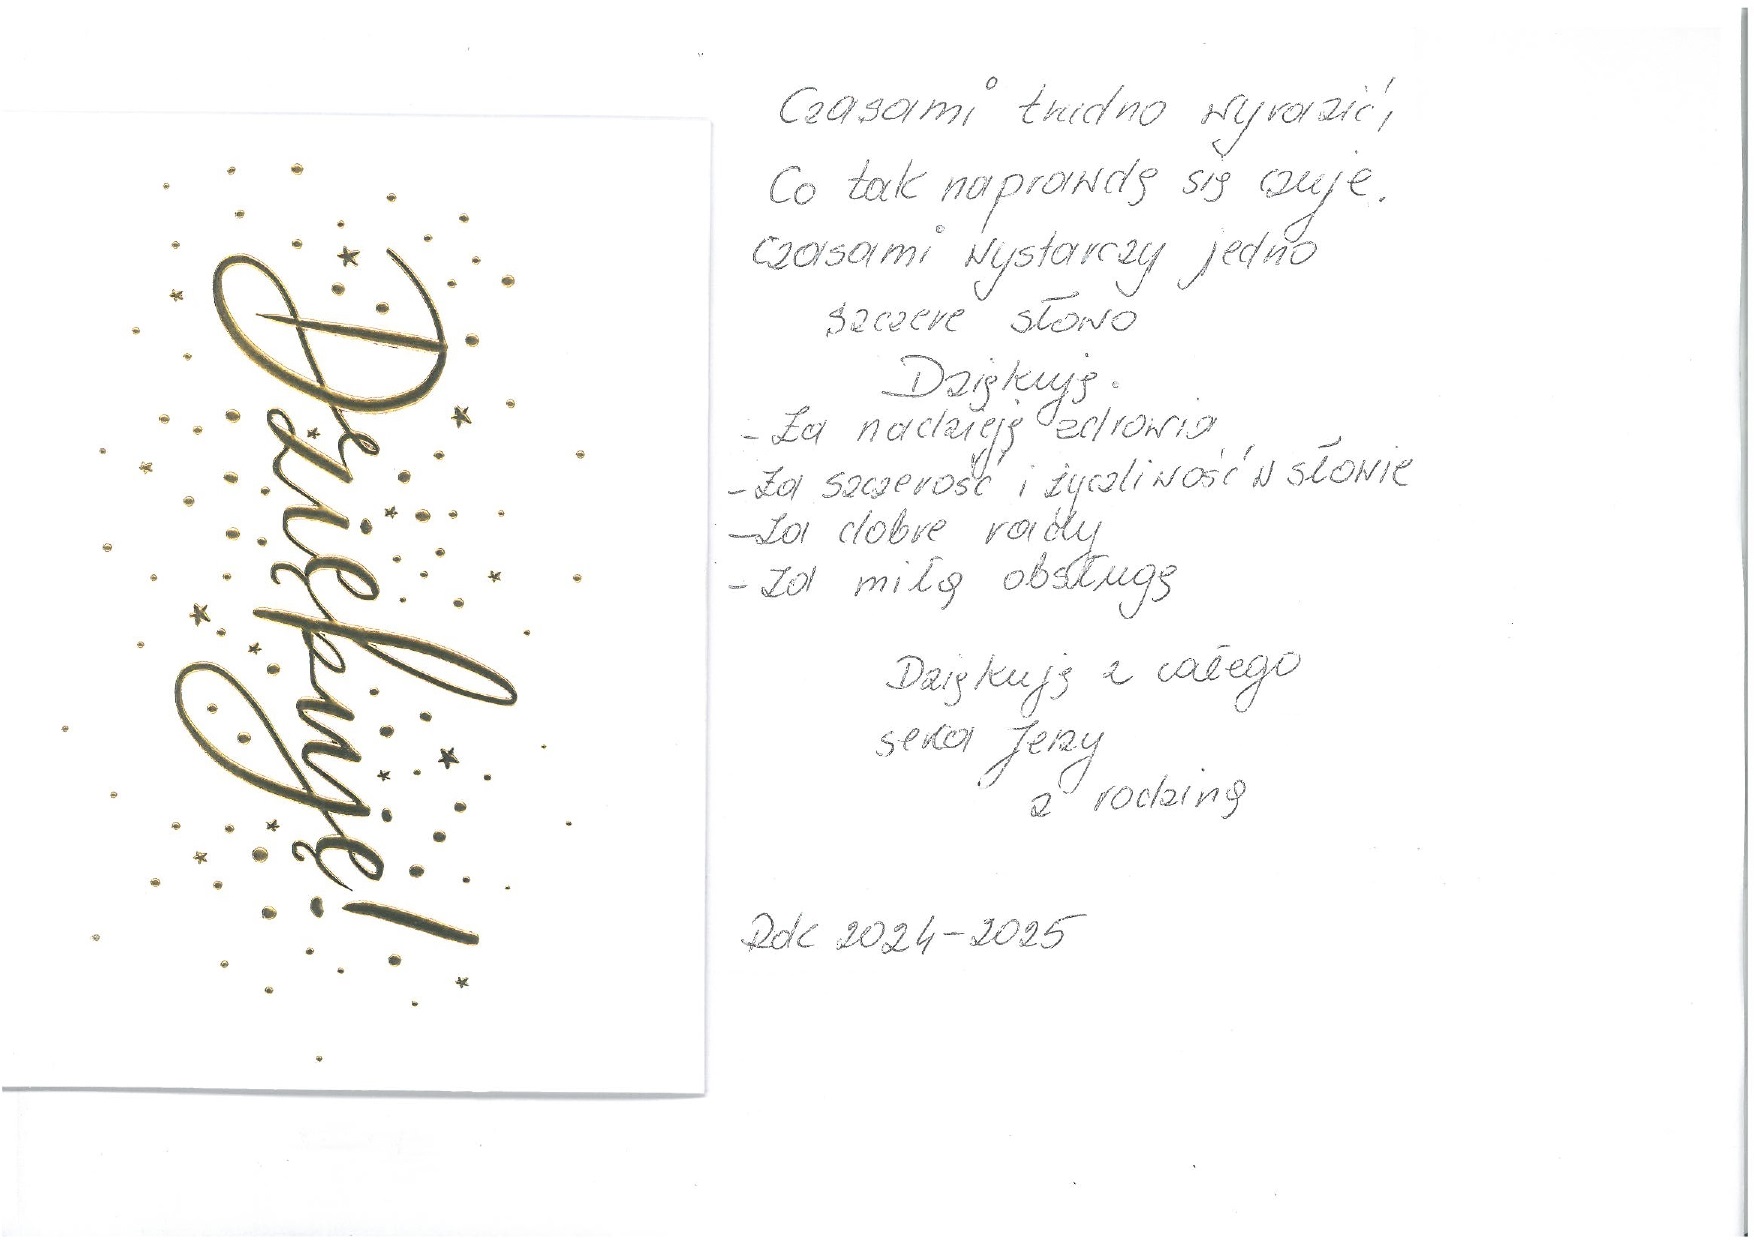 Dziękuję!
Czasami trudno wyrazić,
Co tak naprawdę się czuje.
Czasami wystarczy jedno
szczere słowo
Dziękuję.
- Za nadzieję zdrowia
- Za szczerość i życzliwość w słowie
- Za dobre rady
- Za miłą obsługę
Dziękuję z całego
serca Jerzy
z rodziną
Rok 2024-2025